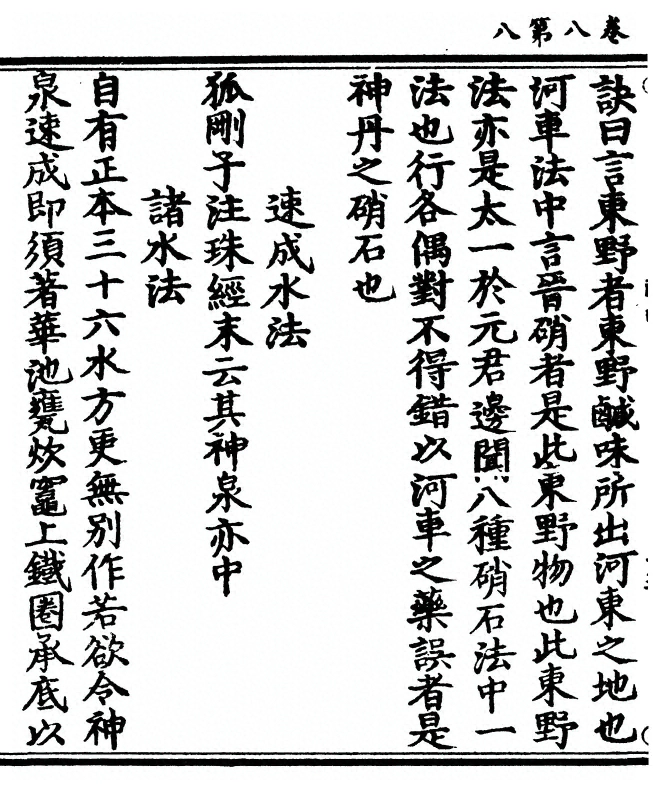 卷八第八
訣曰言東野者東野鹹味所出河東之地也
河車法中言晉硝者是此東野物也此東野
法亦是太一於元君邊聞八種硝石法中一
法也行各偶對不得錯以河車之藥誤者是
神丹之硝石也
速成水法
狐剛子注珠經末云其神泉亦中
諸水法
自有正本三十六水方更無別作若欲令神
泉速成即須著華池甕炊竈上鐵圈承底以